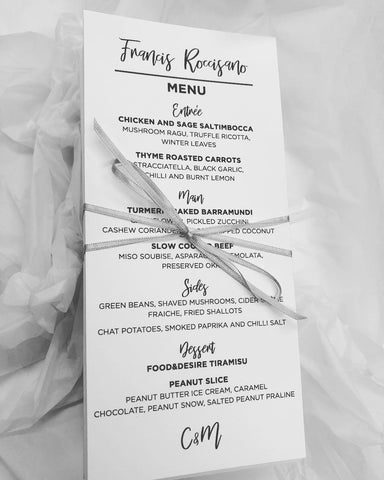 Francis Roccisano
MENU
Entrée
CHICKEN AND SAGE SALTIMBOCCA
MUSHROOM RAGU, TRUFFLE RICOTTA,
WINTER LEAVES
THYME ROASTED CARROTS
STRACCIATELLA, BLACK GARLIC,
CHILLI AND BURNT LEMON
Main
BARRAMUNDI
PICKLED ZUCCHINI,
CASHEW COCONUT
SLOW BEEF
MISO SOUBISE,
PRESERVED
Sides
GREEN BEANS, SHAVED MUSHROOMS, CIDER
FRAICHE, FRIED SHALLOTS
CHAT POTATOES, SMOKED PAPRIKA AND CHILLI SALT
Dessert
FOOD&DESIRE TIRAMISU
PEANUT SLICE
PEANUT BUTTER ICE CREAM, CARAMEL
CHOCOLATE, PEANUT SNOW, SALTED PEANUT PRALINE
C&M